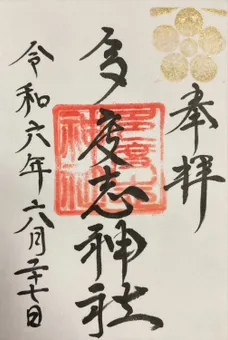 奉拝
多度志神社
令和六年八月二十七日
多度志
神社